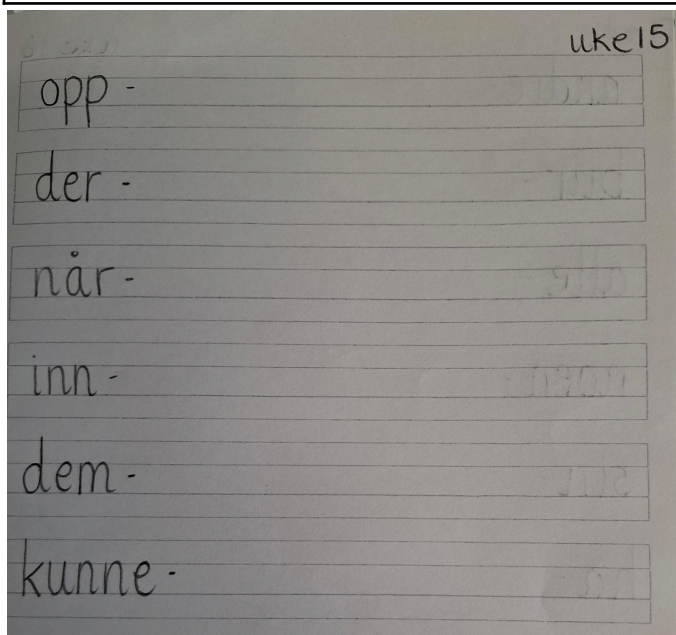 uke 15
opp -
der -
når -
inn -
dem -
kunne -